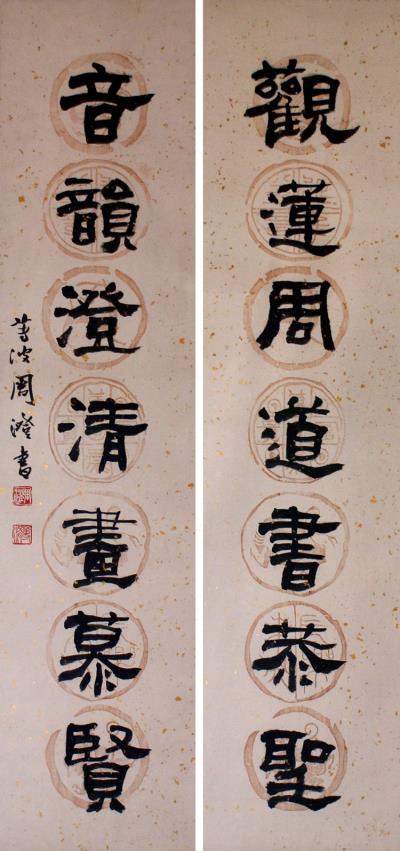 觀蓮周道書恭聖
音韻澄清畫慕賢
蓴波周澄書